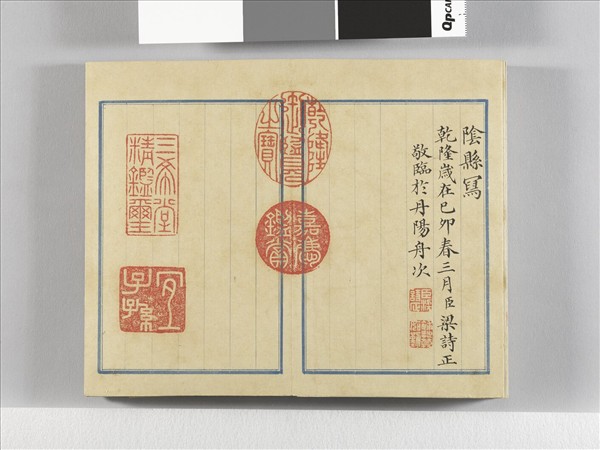 陰縣寫
乾隆歲在己卯春三月臣梁詩正
敬臨於丹陽舟次
乾隆
御覽
之寶
嘉慶
鑑賞
三希堂
精鑑璽
宜
子孫
QpCA